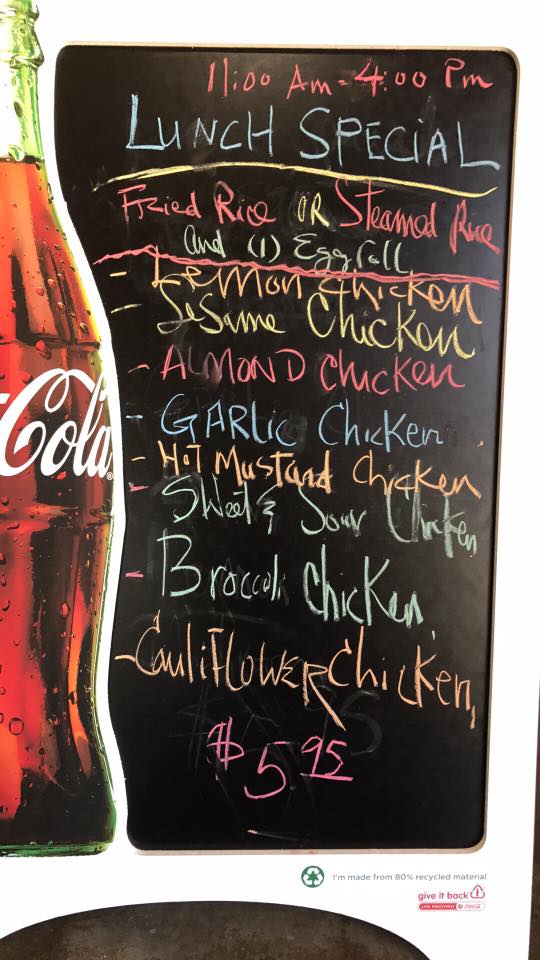 11:00 Am - 4:00 Pm
LUNCH SPECiAL
Fried Rice OR Steamed Rice
And (1) Eggroll
- Lemon Chicken
- Sesame Chicken
- ALMOND Chicken
- GARLic Chicken
- HOT Mustard Chicken
- Sweet & Sour Chicken
- Broccoli Chicken
- CauliFLOWER Chicken,
$5.95
Cola
I'm made from 80% recycled material
give it back